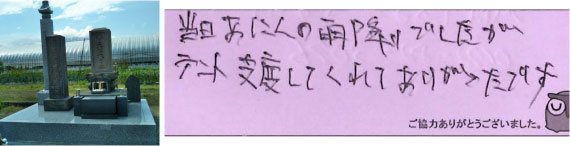 当日あいにくの雨降りでしたが
テント支度してくれてありがったです
ご協力ありがとうございました。